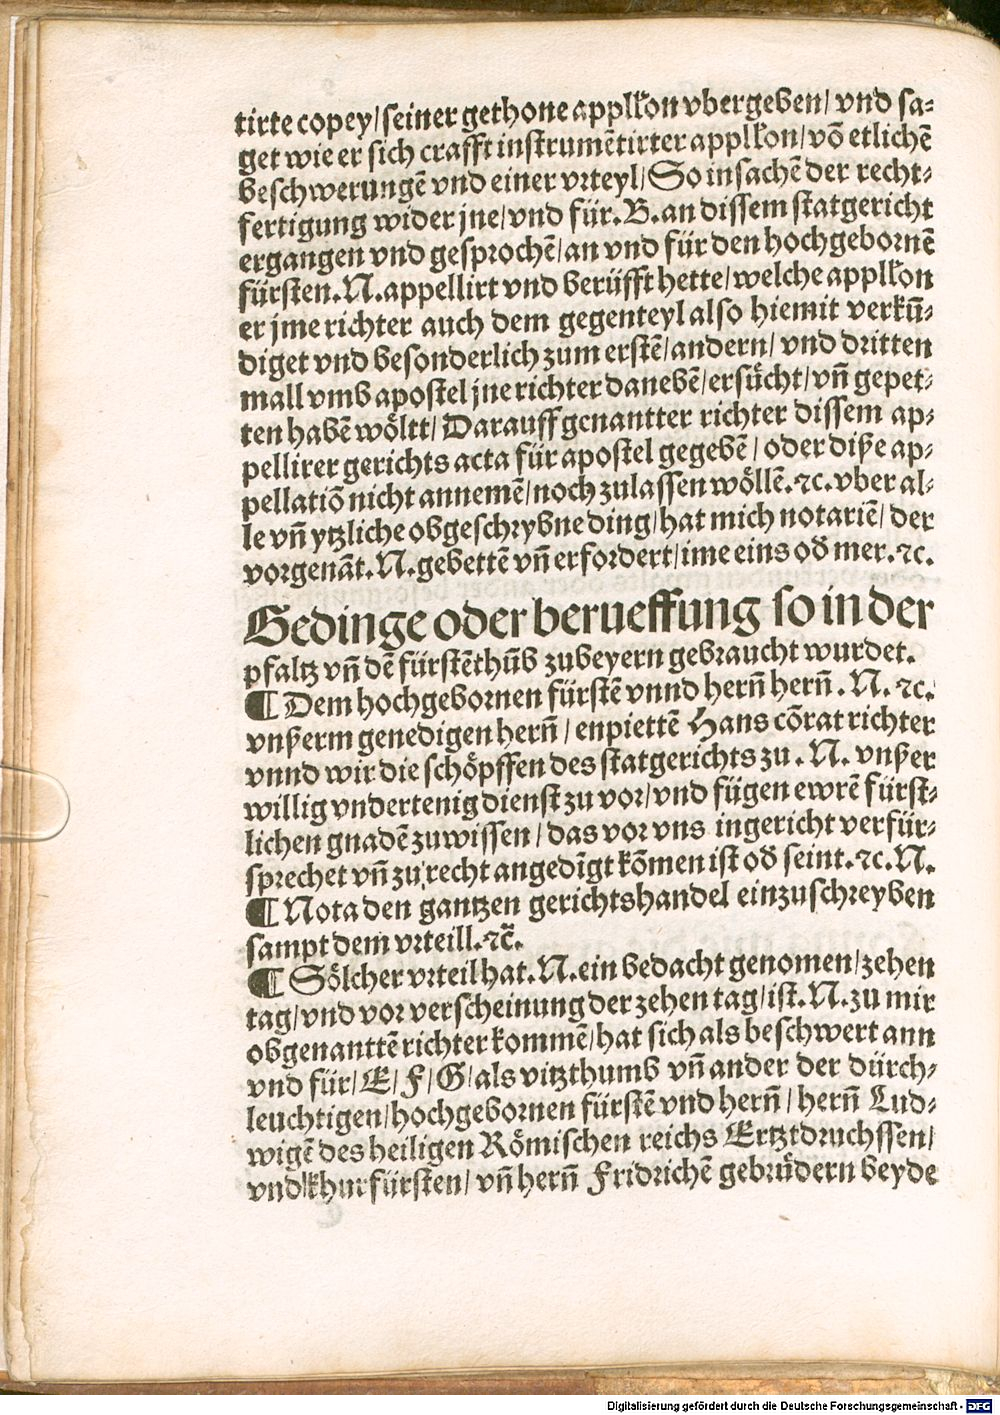 tirte copey/seiner gethone appll'on vbergeben/ vnd sa⸗
get wie er sich crafft instrumētirter appll'on/ vō etlichē
beschwerungē vnd einer vrteyl/ So in sachē der recht⸗
fertigung wider jne/ vnd für .B. an dissem statgericht
ergangen vnd gesprochē/ an vnd für den hochgebornē
fürsten .N. appellirt vnd berüfft hette/ welche appll'on
er jme richter auch dem gegenteyl also hiemit verkū⸗
diget vnd besonderlich zum erstē/ andern/ vnd dritten
mall vmb apostel jne richter danebē/ ersücht/ vn̄ gepet⸗
ten habē wöltt/ Darauff genantter richter dissem ap⸗
pellirer gerichts acta für apostel gegebē/ oder diße ap⸗
pellatiō nicht annemē/ noch zulassen wöllē. ⁊c. vber al⸗
le vn̄ ytzliche obgeschrybne ding/ hat mich notariē/ der
vorgenāt .N. gebettē vn̄ erfordert/ ime eins oď mer. ⁊c.
Gedinge oder berueffung so in der
pfaltz vn̄ dē fürstēthūb zu beyern gebraucht wurdet.
¶ Dem hochgebornen fürstē vnnd hern̄ hern̄ .N. ⁊c.
vnßerm genedigen hern̄/ enpiettē Hans cōrat richter
vnnd wir die schöpffen des statgerichts zu .N. vnßer
willig vndertenig dienst zu vor/ vnd fügen ewrē fürst⸗
lichen gnadē zuwissen/ das vor vns in gericht verfür⸗
sprechet vn̄ zu recht angedīgt kōmen ist oď seint. ⁊c. N.
¶ Nota den gantzen gerichtshandel einzuschreyben
sampt dem vrteill. ⁊c̄.
¶ Sölcher vrteil hat .N. ein bedacht genomen/ zehen
tag/ vnd vor verscheinung der zehen tag/ ist .N. zu mir
obgenanttē richter kommē/ hat sich als beschwert ann
vnd für/ E/ F/ G/ als vitzthumb vn̄ ander der dürch⸗
leuchtigen/ hochgebornen fürstē vnd hern̄/ hern̄ Lud⸗
wigē des heiligen Römischen reichs Ertztdruchssen/
vnd khurfürsten/ vn̄ hern̄ Fridrichē gebrüdern beyde
Digitalisierung gefördert durch die Deutsche Forschungsgemeinschaft - DFG